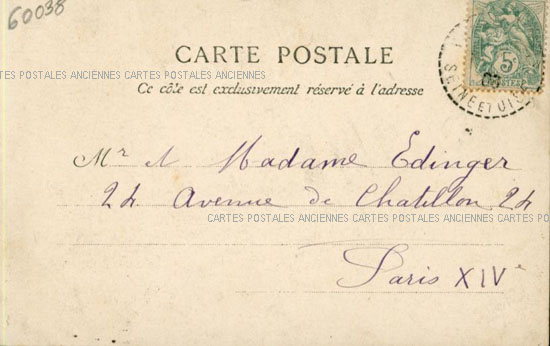 60038
CARTE POSTALE
CARTES POSTALES ANCIENNES CARTES POSTALES ANCIENNES CARTES POSTALES ANCIENNES CARTES POSTALES ANCIENNES
Ce côté est exclusivement réservé à l'adresse
5c
POSTES
05
SEINE ET OISE
Mr et Madame Edinger
24 Avenue de Chatillon 24
CARTES POSTALES ANCIENNES CARTES POSTALES ANCIENNES CARTES PO
Paris XIVe